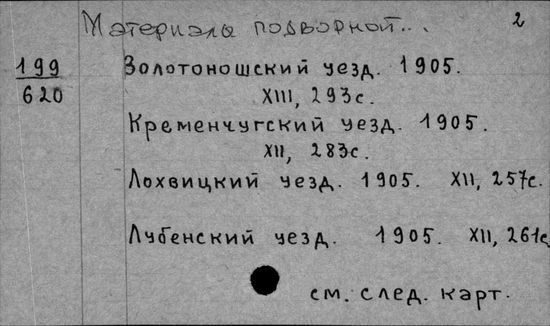 Материалы подворной... 2
199 Золотоношский уезд. 1905.
620 XIII, 293с.
Кременчугский уезд. 1905.
XII, 283с.
Лохвицкий уезд. 1905. XII, 257с.
Лубенский уезд. 1905. XII, 261с
см. след. карт.